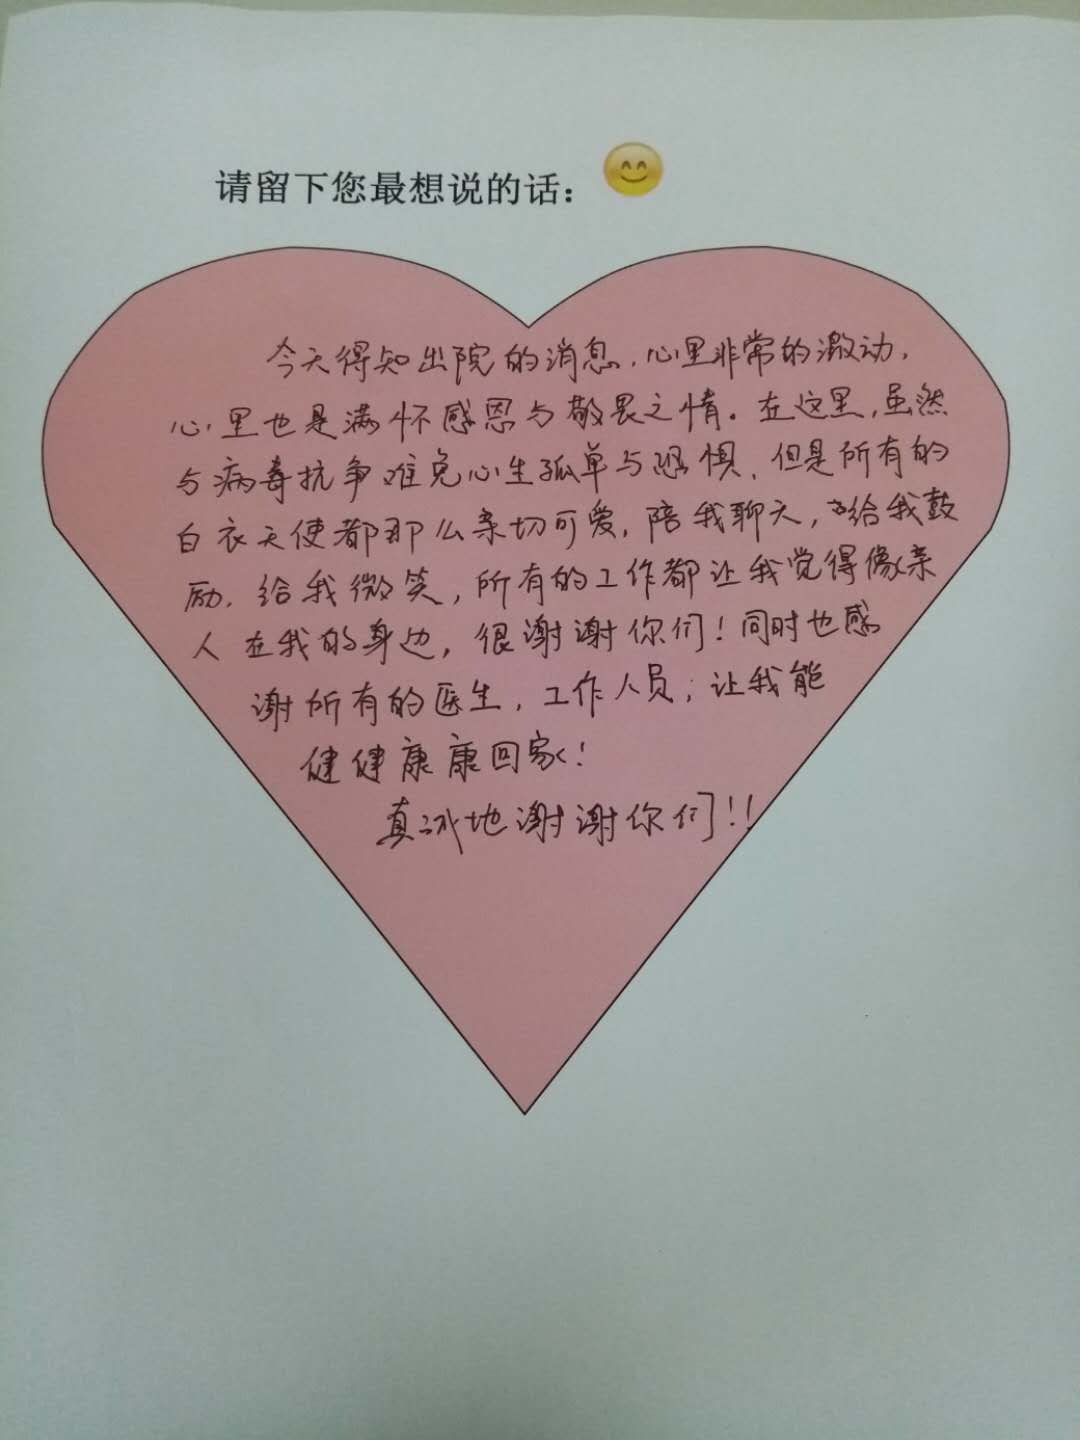 请留下您最想说的话：
今天得知出院的消息，心里非常的激动，
心里也是满怀感恩与敬畏之情。在这里，虽然
与病毒抗争难免心生孤单与恐惧，但是所有的
白衣天使都那么亲切可爱，陪我聊天，给我鼓
励，给我微笑，所有的工作都让我觉得像亲
人在我的身边，很谢谢你们！同时也感
谢所有的医生，工作人员；让我能
健健康康回家！
真诚地谢谢你们！！